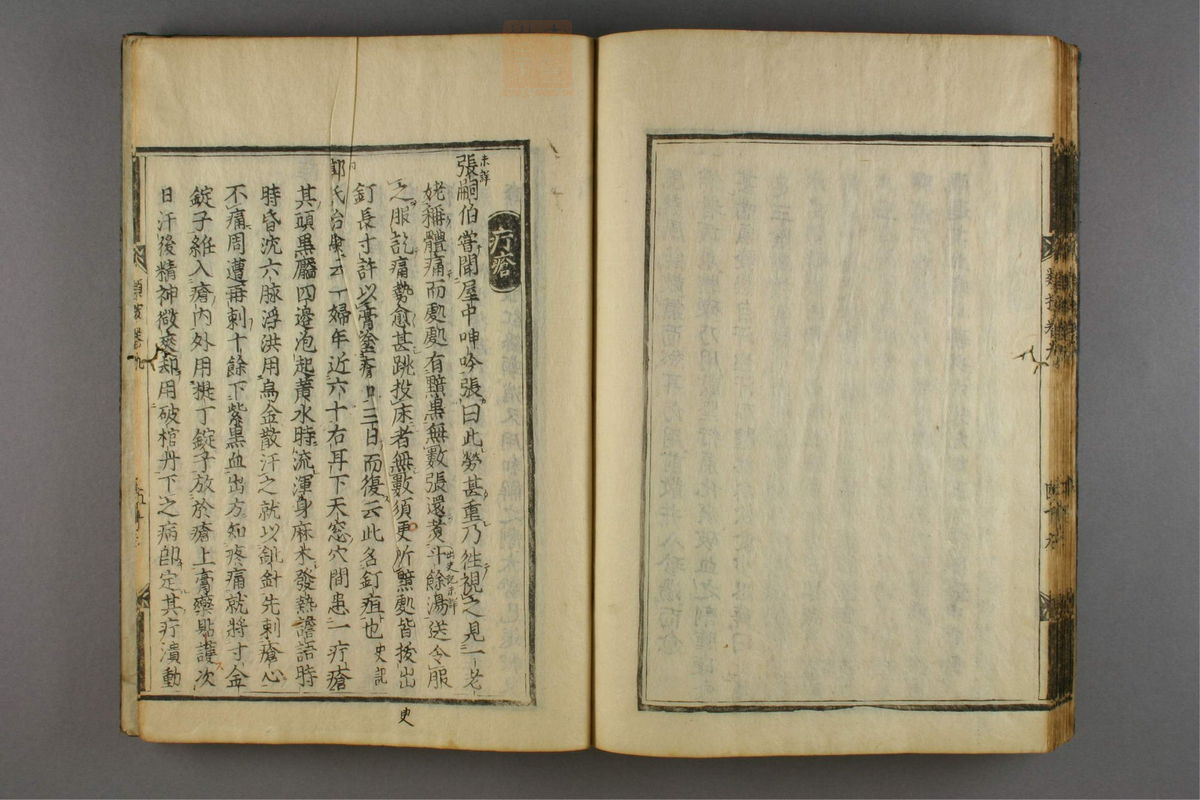 疔瘡
未詳
張嗣伯嘗聞屋中呻吟張曰此勞甚重乃往視之見一老
姥稱體痛而處處有黯黑無數張還煑斗餘湯送令服
之服訖痛勢愈甚跳投床者無數須更所黯處皆拔出
釘長寸許以膏塗瘡口三日而復云此名釘疽也 史記
郭氏治驗云一婦年近六十右耳下天窓穴間患一疔瘡
其頭黒靨四邊泡起黄水時流渾身麻木發熱譫語時
時昏沈六脉浮洪用烏金散汗之就以鈚針先刺瘡心
不痛周遭再刺十餘下紫黒血出方知疼痛就將寸金
錠子維入瘡內外用提丁錠子放於瘡上膏藥貼護次
日汗後精神微爽却用破棺丹下之病卽定其疔潰動
史